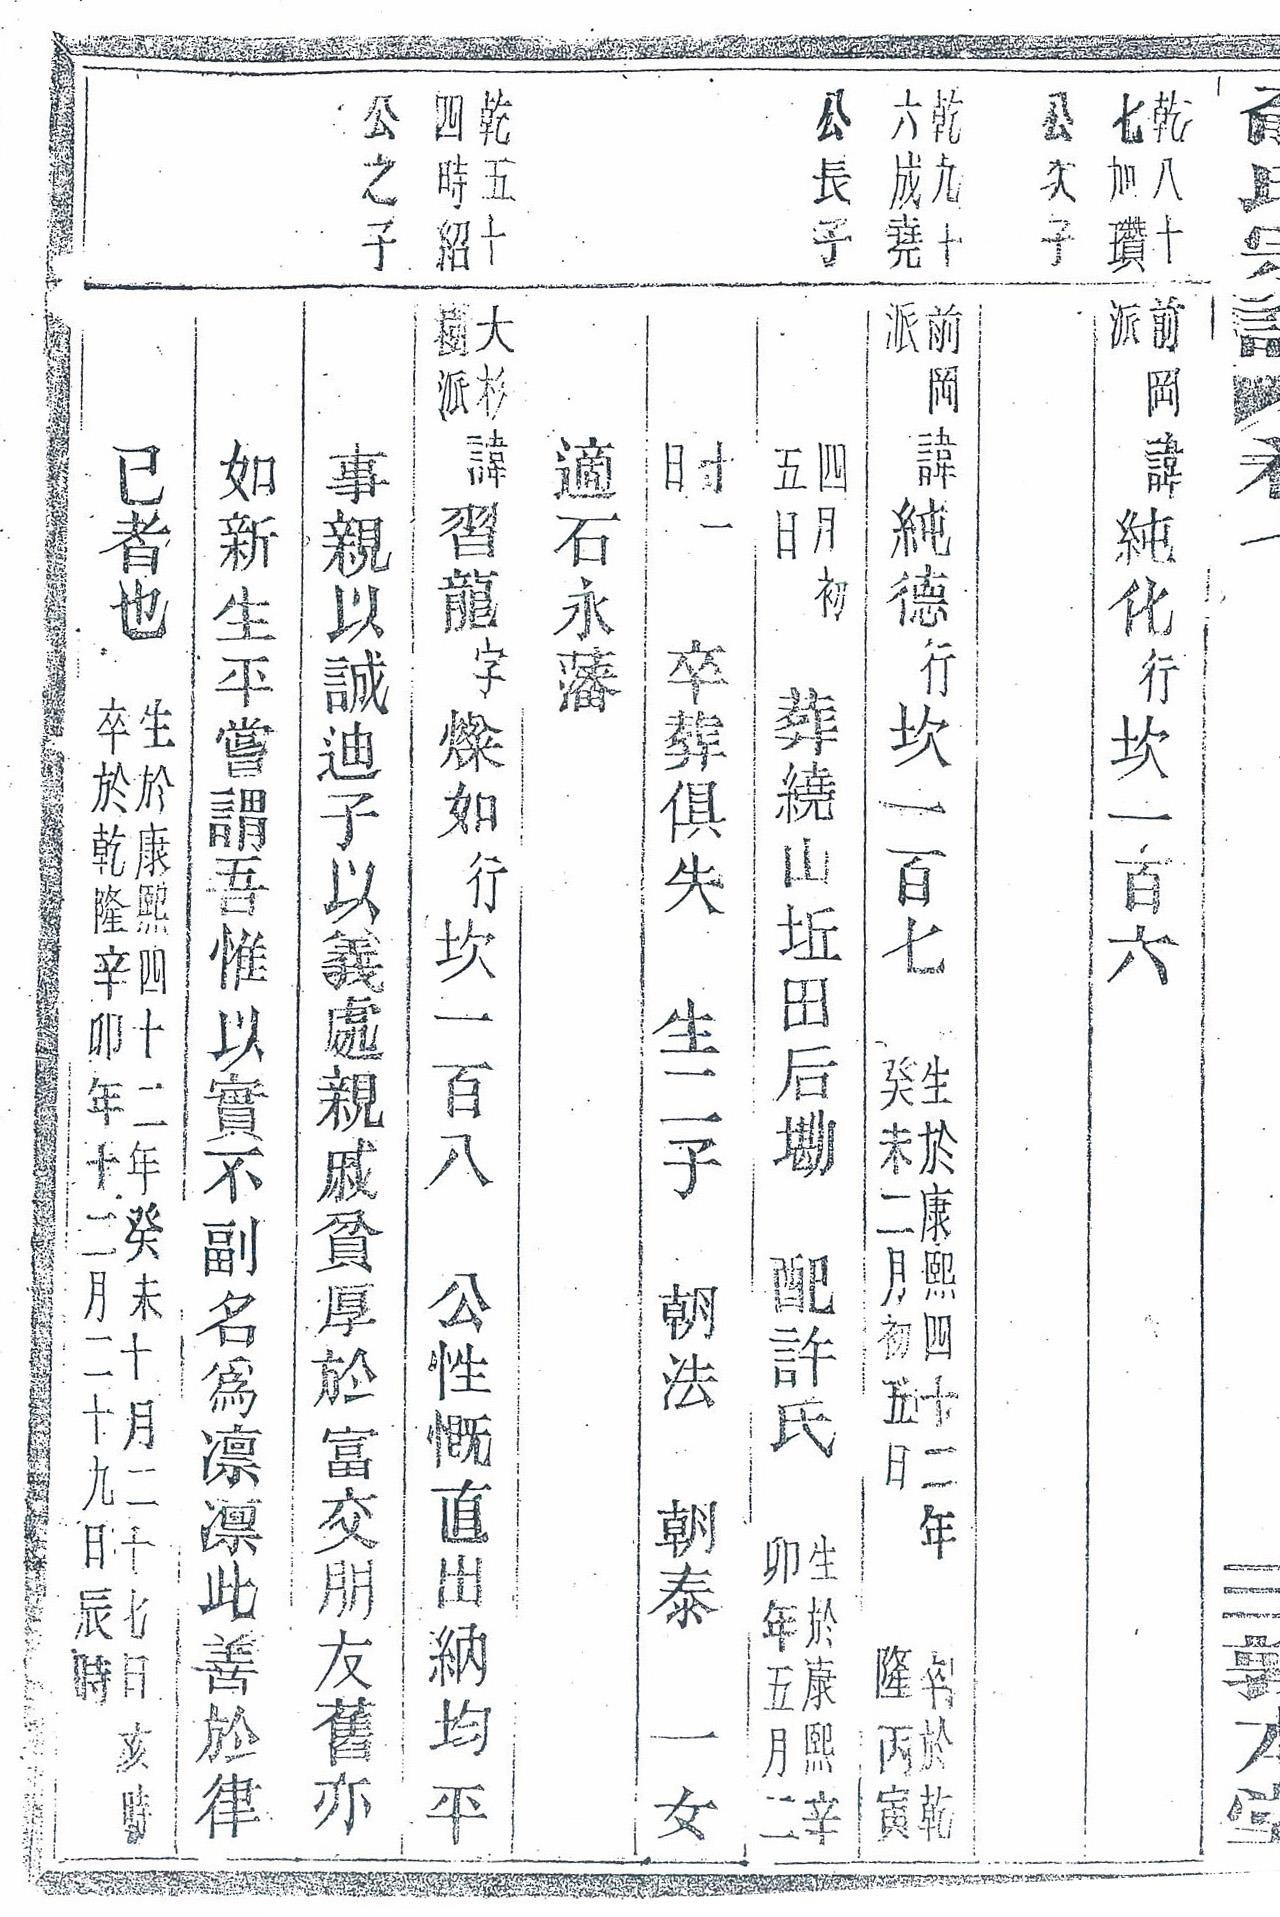 氏宗譜 卷一
敦本堂
乾八十
七加瓚
公次子
前岡
派
諱純化行坎一百六
乾九十
六成堯
公長子
前岡
派
諱純德行坎一百七
生於康熙四十二年
癸未二月初五日
卒於乾
隆丙寅
四月初
五日
葬繞山坵田后墈 配許氏
生於康熙辛
卯年五月二
十一
日
卒葬俱失 生二子 朝法 朝泰 一女
適石永藩
乾五十
四時紹
公之子
大杉
樹派
諱習龍字燦如行坎一百八 公性慨直出納均平
事親以誠迪子以義處親戚貧厚於富交朋友舊亦
如新生平嘗謂吾惟以實不副名為凛凛此善於律
已者也
生於康熙四十二年癸未十月二十七日亥時
卒於乾隆辛卯年十二月二十九日辰時